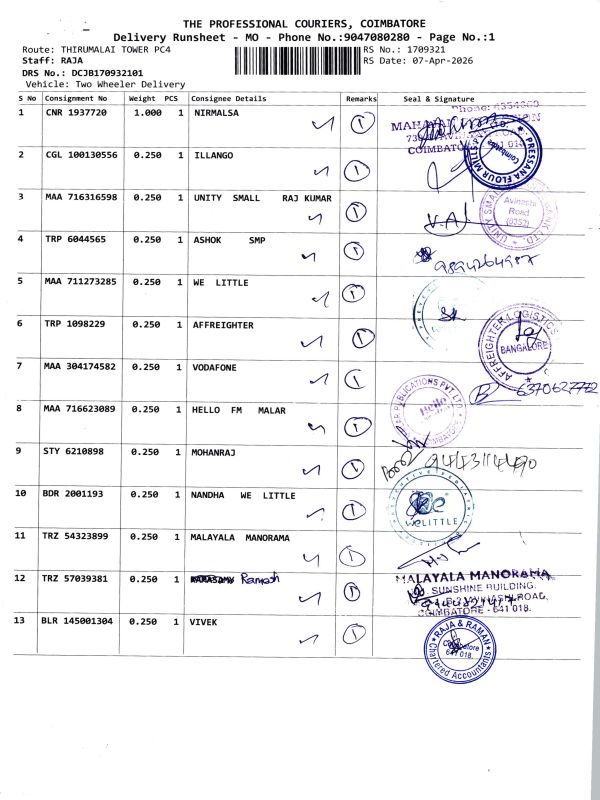 THE PROFESSIONAL COURIERS, COIMBATORE
Delivery Runsheet - MO - Phone No.:9047080280 - Page No.:1
Route: THIRUMALAI TOWER PC4 RS No.: 1709321
Staff: RAJA RS Date: 07-Apr-2026
DRS No.: DCJB170932101
Vehicle: Two Wheeler Delivery
S No Consignment No Weight PCS Consignee Details Remarks Seal & Signature
1 CNR 1937720 1.000 1 NIRMALSA 1
COIMBATORE
PRESSANA FLOUR MILLS PVT. LTD. Coimbatore
2 CGL 100130556 0.250 1 ILLANGO 1
3 MAA 716316598 0.250 1 UNITY SMALL RAJ KUMAR 1
Avinashi Road
4 TRP 6044565 0.250 1 ASHOK SMP 1
9894264987
5 MAA 711273285 0.250 1 WE LITTLE 1
6 TRP 1098229 0.250 1 AFFREIGHTER 1
AFFREIGHTER LOGISTICS BANGALORE
7 MAA 304174582 0.250 1 VODAFONE 1
8 MAA 716623089 0.250 1 HELLO FM MALAR 1
PUBLICATIONS PVT. LTD. Hello COIMBATORE
9 STY 6210898 0.250 1 MOHANRAJ 1
10 BDR 2001193 0.250 1 NANDHA WE LITTLE 1
WELITTLE
11 TRZ 54323899 0.250 1 MALAYALA MANORAMA 1
12 TRZ 57039381 0.250 1 Ramesh 1
MALAYALA MANORAMA
SUNSHINE BUILDING,
COIMBATORE - 641 018.
13 BLR 145001304 0.250 1 VIVEK 1
RAJA & RAMAN Coimbatore 641 018. Chartered Accountants